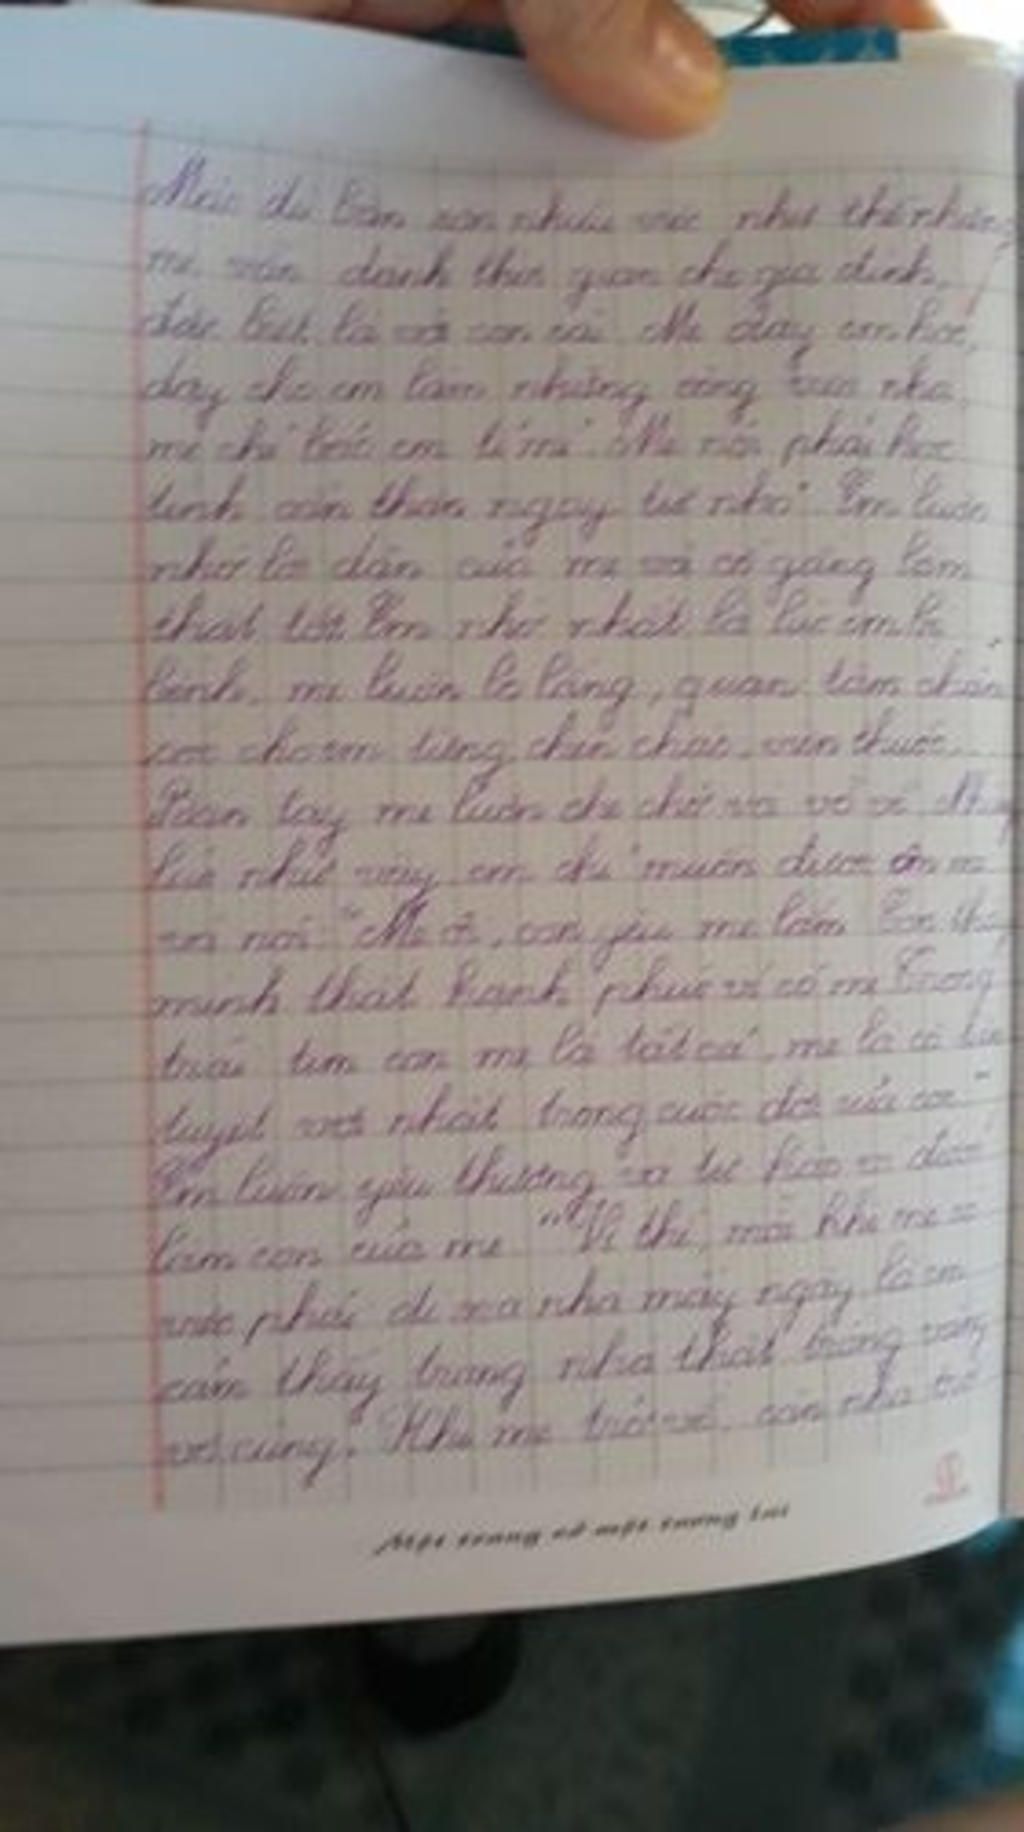 Mặc dù bận rộn nhiều việc như thế nhưng
mẹ vẫn dành thời gian cho gia đình,
đặc biệt là với con cái. Mẹ dạy em học,
dạy cho em làm những công việc nhà,
mẹ chỉ bảo em tỉ mỉ. Mẹ nói phải học
tính cẩn thận ngay từ nhỏ. Em luôn
nhớ lời dặn của mẹ và cố gắng làm
thật tốt. Em nhớ nhất là lúc em bị
bệnh, mẹ luôn lo lắng, quan tâm chăm
sóc cho em từng chén cháo, viên thuốc.
Bàn tay mẹ luôn che chở và vỗ về.
lúc như vậy em chỉ muốn được ôm mẹ
và nói "Mẹ ơi, con yêu mẹ lắm. Con thấy
mình thật hạnh phúc vì có mẹ. Trong
trái tim con mẹ là tất cả, mẹ là cô tiên
tuyệt vời nhất trong cuộc đời của con.
Em luôn yêu thương và tự hào vì được
làm con của mẹ". Vì thế, mỗi khi mẹ có
việc phải đi xa nhà mấy ngày là em
cảm thấy trong nhà thật trống vắng
vô cùng. Khi mẹ trở về, căn nhà trở
Một trang vở một tương lai